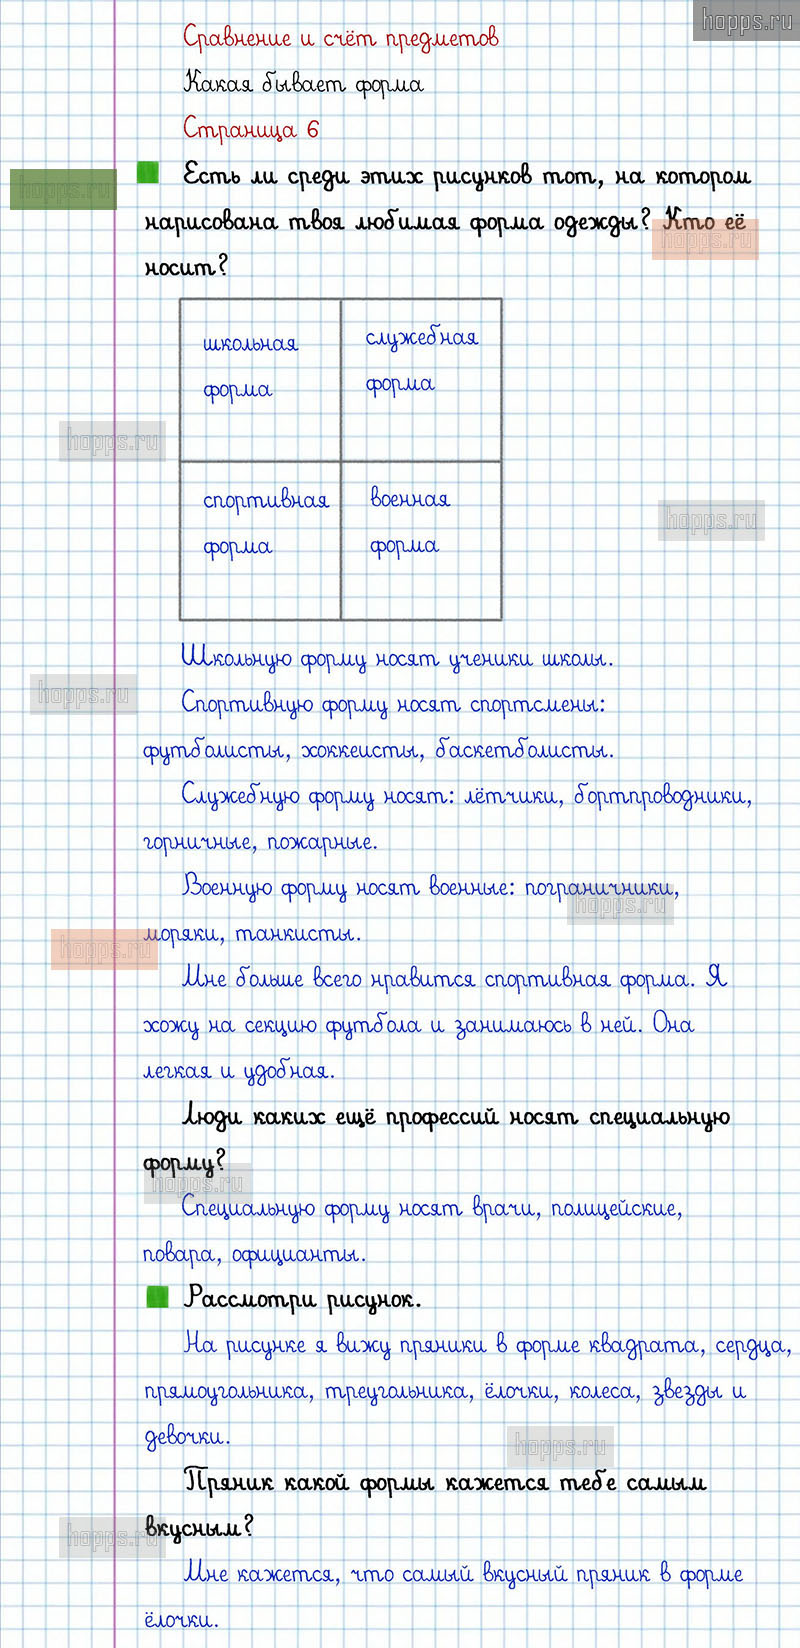 hopps.ru
Сравнение и счёт предметов
Какая бывает форма
Страница 6
hopps.ru
Есть ли среди этих рисунков тот, на котором
нарисована твоя любимая форма одежды? Кто её
hopps.ru
носит?
школьная
форма
служебная
форма
hopps.ru
спортивная
форма
военная
форма
hopps.ru
Школьную форму носят ученики школы.
hopps.ru
Спортивную форму носят спортсмены:
футболисты, хоккеисты, баскетболисты.
Служебную форму носят: лётчики, бортпроводники,
горничные, пожарные.
Военную форму носят военные: пограничники,
hopps.ru
моряки, танкисты.
hopps.ru
Мне больше всего нравится спортивная форма. Я
хожу на секцию футбола и занимаюсь в ней. Она
легкая и удобная.
Люди каких ещё профессий носят специальную
форму?
hopps.ru
Специальную форму носят врачи, полицейские,
повара, официанты.
Рассмотри рисунок.
На рисунке я вижу пряники в форме квадрата, сердца,
прямоугольника, треугольника, ёлочки, колеса, звезды и
девочки.
hopps.ru
Пряник какой формы кажется тебе самым
вкусным?
hopps.ru
Мне кажется, что самый вкусный пряник в форме
ёлочки.